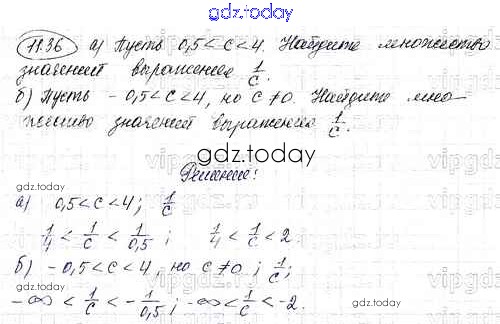 gdz.today
11.36 а) Пусть 0,5 < c < 4. Найдите множество
значений выражения 1/c.
б) Пусть -0,5 < c < 4, но c ≠ 0. Найдите мно-
жество значений выражения 1/c.
gdz.today
Решение:
а) 0,5 < c < 4; 1/c
1/4 < 1/c < 1/0,5; 1/4 < 1/c < 2.
б) -0,5 < c < 4, но c ≠ 0; 1/c;
-∞ < 1/c < -1/0,5; -∞ < 1/c < -2.
gdz.today